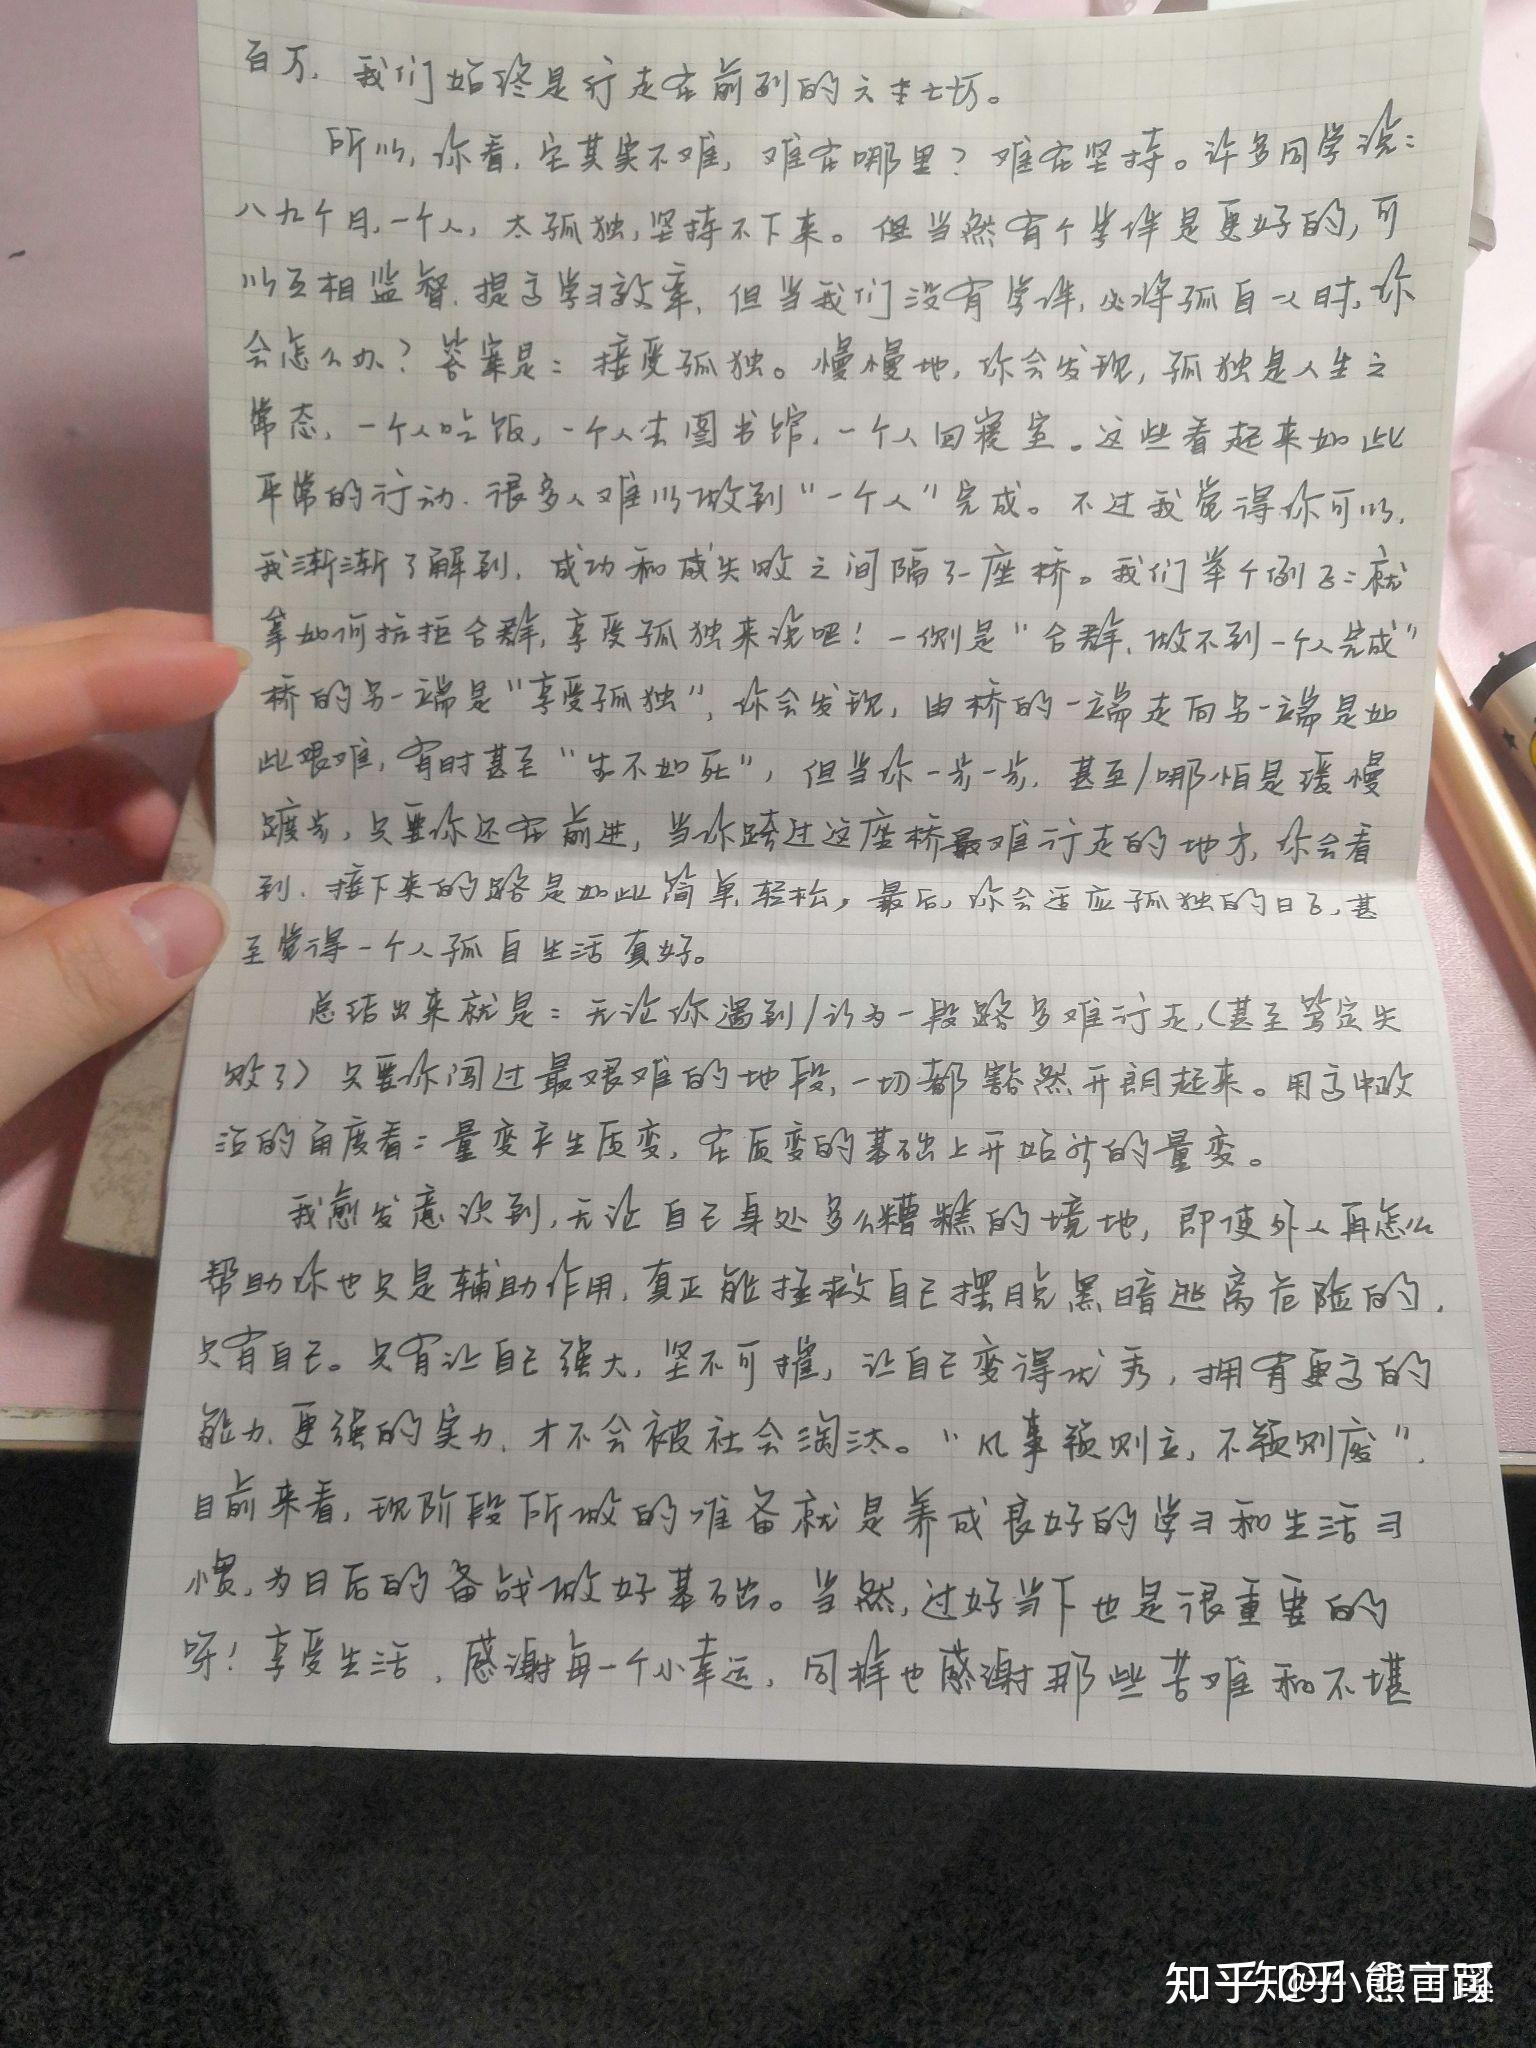 百万，我们始终是行走在前列的
所以，你看，它其实不难，难在哪里？难在坚持。许多同学说：
八九个月，一个人，太孤独，坚持不下来。但当然有个学伴是更好的，可
以互相监督，提高学习效率，但当我们没有学伴，必将孤自一人时，你
会怎么办？答案是：接受孤独。慢慢地，你会发现，孤独是人生之
常态，一个人吃饭，一个人去图书馆，一个人回寝室。这些看起来如此
平常的行动，很多人难以做到“一个人”完成。不过我觉得你可以，
我渐渐了解到，成功和失败之间隔了一座桥。我们举个例子：就
拿如何抗拒合群，享受孤独来说吧！一侧是“合群，做不到一个人完成”
桥的另一端是“享受孤独”，你会发现，由桥的一端走向另一端是如
此艰难，有时甚至“生不如死”，但当你一步一步，甚至/哪怕是缓慢
踱步，只要你还在前进，当你跨过这座桥最难行走的地方，你会看
到，接下来的路是如此简单，轻松，最后，你会适应孤独的日子，甚
至觉得一个人孤自生活真好。
总结出来就是：无论你遇到/认为一段路多难行走，（甚至笃定失
败了）只要你闯过最艰难的地段，一切都豁然开朗起来。用高中政
治的角度看：量变产生质变，在质变的基础上开始新的量变。
我愈发意识到，无论自己身处多么糟糕的境地，即使外人再怎么
帮助你也只是辅助作用，真正能拯救自己摆脱黑暗逃离危险的，
只有自己。只有让自己强大，坚不可摧，让自己变得优秀，拥有更高的
能力，更强的实力，才不会被社会淘汰。“凡事预则立，不预则废”，
目前来看，现阶段所做的准备就是养成良好的学习和生活习
惯，为日后的备战做好基础。当然，过好当下也是很重要的
呀！享受生活，感谢每一个小幸运，同样也感谢那些苦难和不堪
知乎 @小熊言蹊